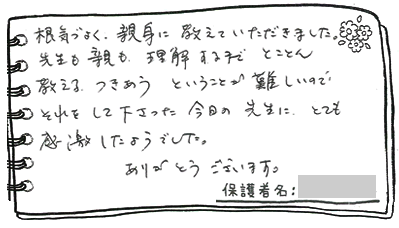 根気づよく、親身に教えていただきました。
先生も親も、理解するまで とことん
教える、つきあう ということが 難しいので
それをして下さった 今日の先生に、とても
感激したようでした。
ありがとうございます。
保護者名: